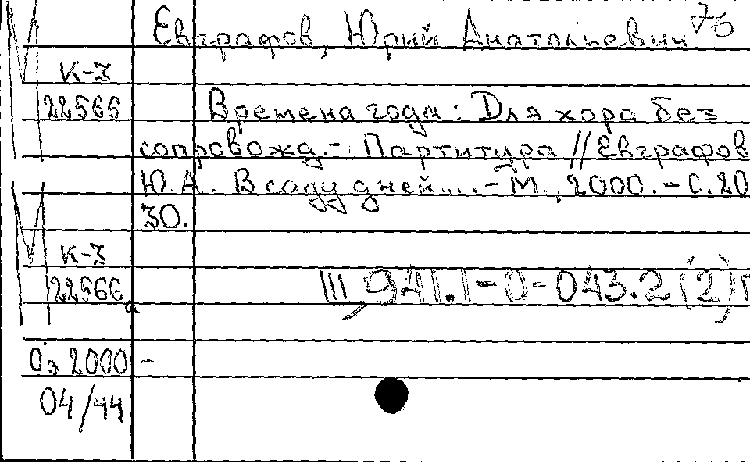 Евграфов, Юрий Анатольевич 75
М
К-3
22565
Времена года: Для хора без
сопровожд.- Партитура // Евграфов
Ю.А. В саду дней....-М., 2000.-С.20
30.
М
К-3
22566
III 941.1-0-043.2(2)
Оэ 2000-
04/44